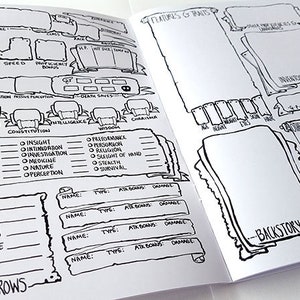 SPEED
PROFICIENCY
BONUS
DEATH SAVES
INTELLIGENCE
CHARISMA
CONSTITUTION
WISDOM
INSIGHT
INTIMIDATION
INVESTIGATION
MEDICINE
NATURE
PERCEPTION
PERFORMANCE
PERSUASION
RELIGION
SLEIGHT OF HAND
STEALTH
SURVIVAL
NAME: TYPE: ATK BONUS: DAMAGE
NAME: TYPE: ATK BONUS: DAMAGE
NAME: TYPE: ATK BONUS: DAMAGE
NAME: TYPE: ATK BONUS: DAMAGE
ROWS
FEATURES & TRAITS
LANGUAGES
AGE
HEIGHT
WEIGHT
EYES
SKIN
HAIR
BACKSTORY